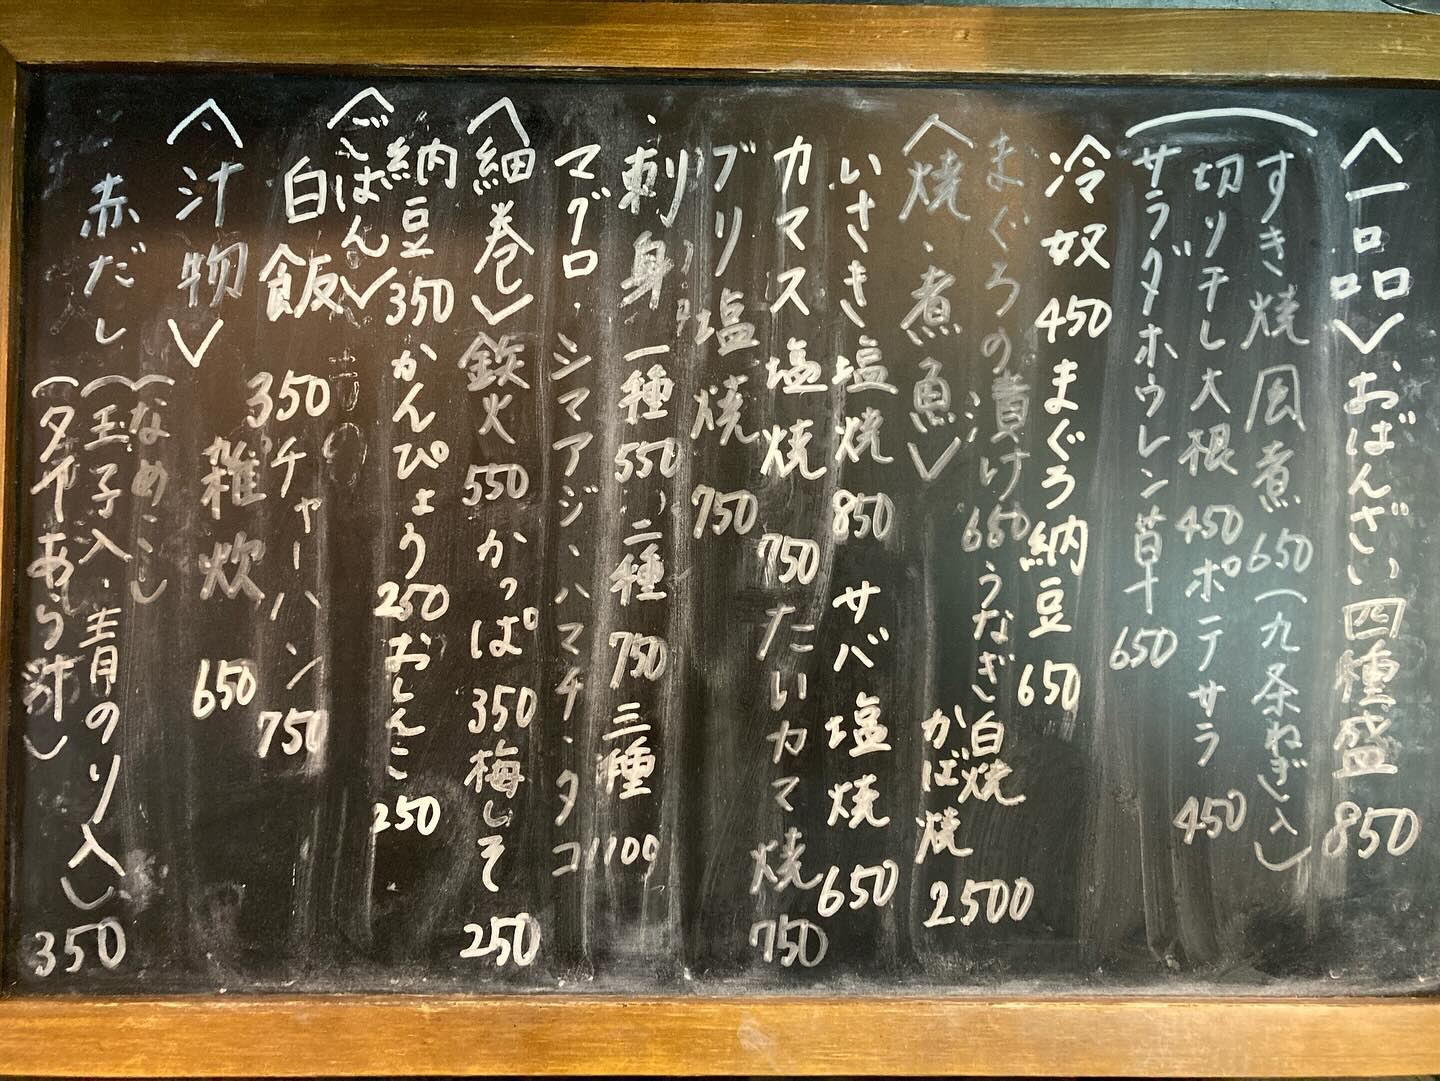 〈一品〉おばんざい四種盛 850
すき焼風煮 650(九条ねぎ入)
切り干し大根 450 ポテサラ 450
サラダホウレン草 650
冷奴 450 まぐろ納豆 650
まぐろの漬け 650 うなぎ白焼 かば焼 2500
〈焼・煮魚〉
いさき塩焼 850 サバ塩焼 650
カマス塩焼 750 たいカマ焼 750
ブリ塩焼 750
刺身 一種 550 二種 750 三種 1100
マグロ・シマアジ・ハマチ・タコ
〈細巻〉鉄火 550 かっぱ 350 梅しそ 250
納豆 350 かんぴょう 250 おしんこ 250
〈ごはん〉
白飯 350 チャーハン 750
雑炊 650
〈汁物〉
赤だし
(なめこ)
(玉子入・青のり入)
(タイあら汁) 350